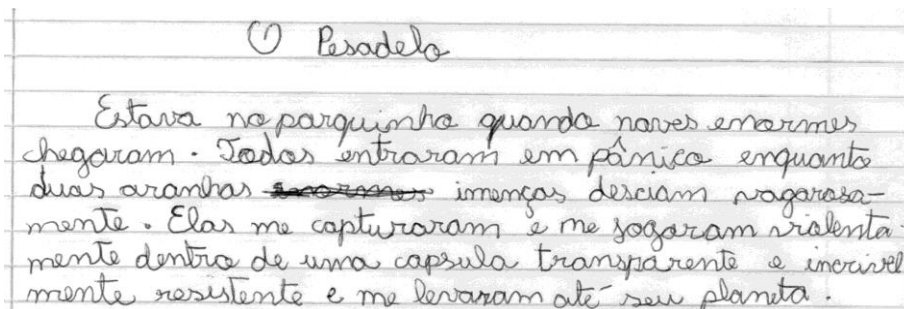 O Pesadelo
Estava no parquinho quando naves enormes
chegaram. Todos entraram em pânico enquanto
duas aranhas enormes imenças desciam vagarosa-
mente. Elas me capturaram e me jogaram violenta-
mente dentro de uma capsula transparente e incrivel
mente resistente e me levaram até seu planeta.